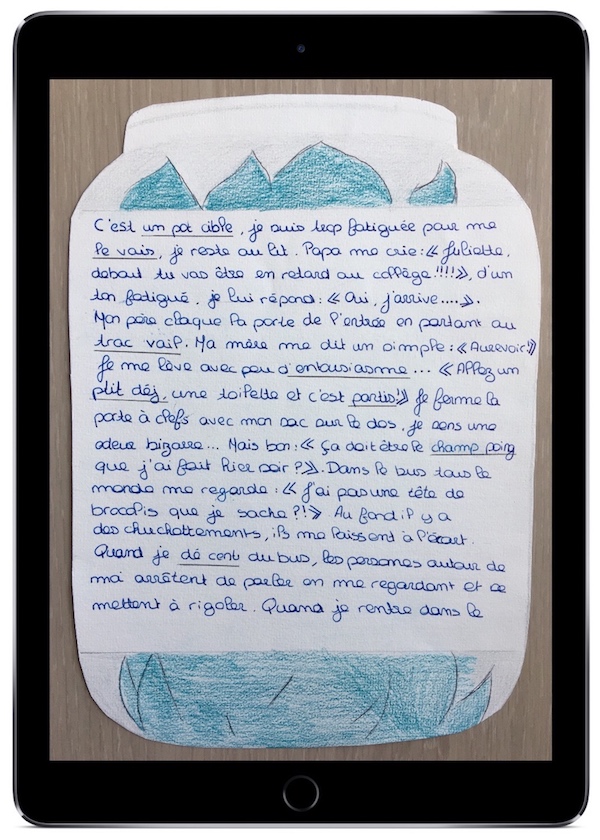 C'est un pot cible, je suis trop fatiguée pour me
le vais, je reste au lit. Papa me crie : « Juliette,
debout tu vas être en retard au collège !!!! », d'un
ton fatigué, je lui répond : « Oui, j'arrive.... ».
Mon père claque la porte de l'entrée en partant au
trac vail. Ma mère me dit un simple : « Aurevoir ! »
Je me lève avec peu d'entousiasme... « Allez un
ptit déj, une toilette et c'est partis ! » Je ferme la
porte à clefs avec mon sac sur le dos, je sens une
odeur bizarre... Mais bon : « Ça doit être le champ poing
que j'ai fait hier soir ? ». Dans le bus tous le
monde me regarde : « J'ai pas une tête de
brocolis que je sache ?! » Au fond il y a
des chuchottements, ils me laissent à l'écart.
Quand je dé cent du bus, les personnes autour de
moi arrêtent de parler en me regardant et ce
mettent à rigoler. Quand je rentre dans le